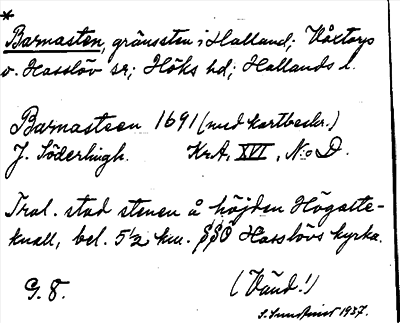 *
Barnasten, gränssten i Halland; Våxtorps
o. Hasslöv sr; Höks hd; Hallands l.
Barnasteen 1691 (med kartbeskr.)
J. Söderlingh. KrA, XVI, N:o D.
Tral. stod stenen å höjden Högalte-
knall, bel. 5½ km. SSO Hasslövs kyrka.
G. 8. (Vänd!)
1937.